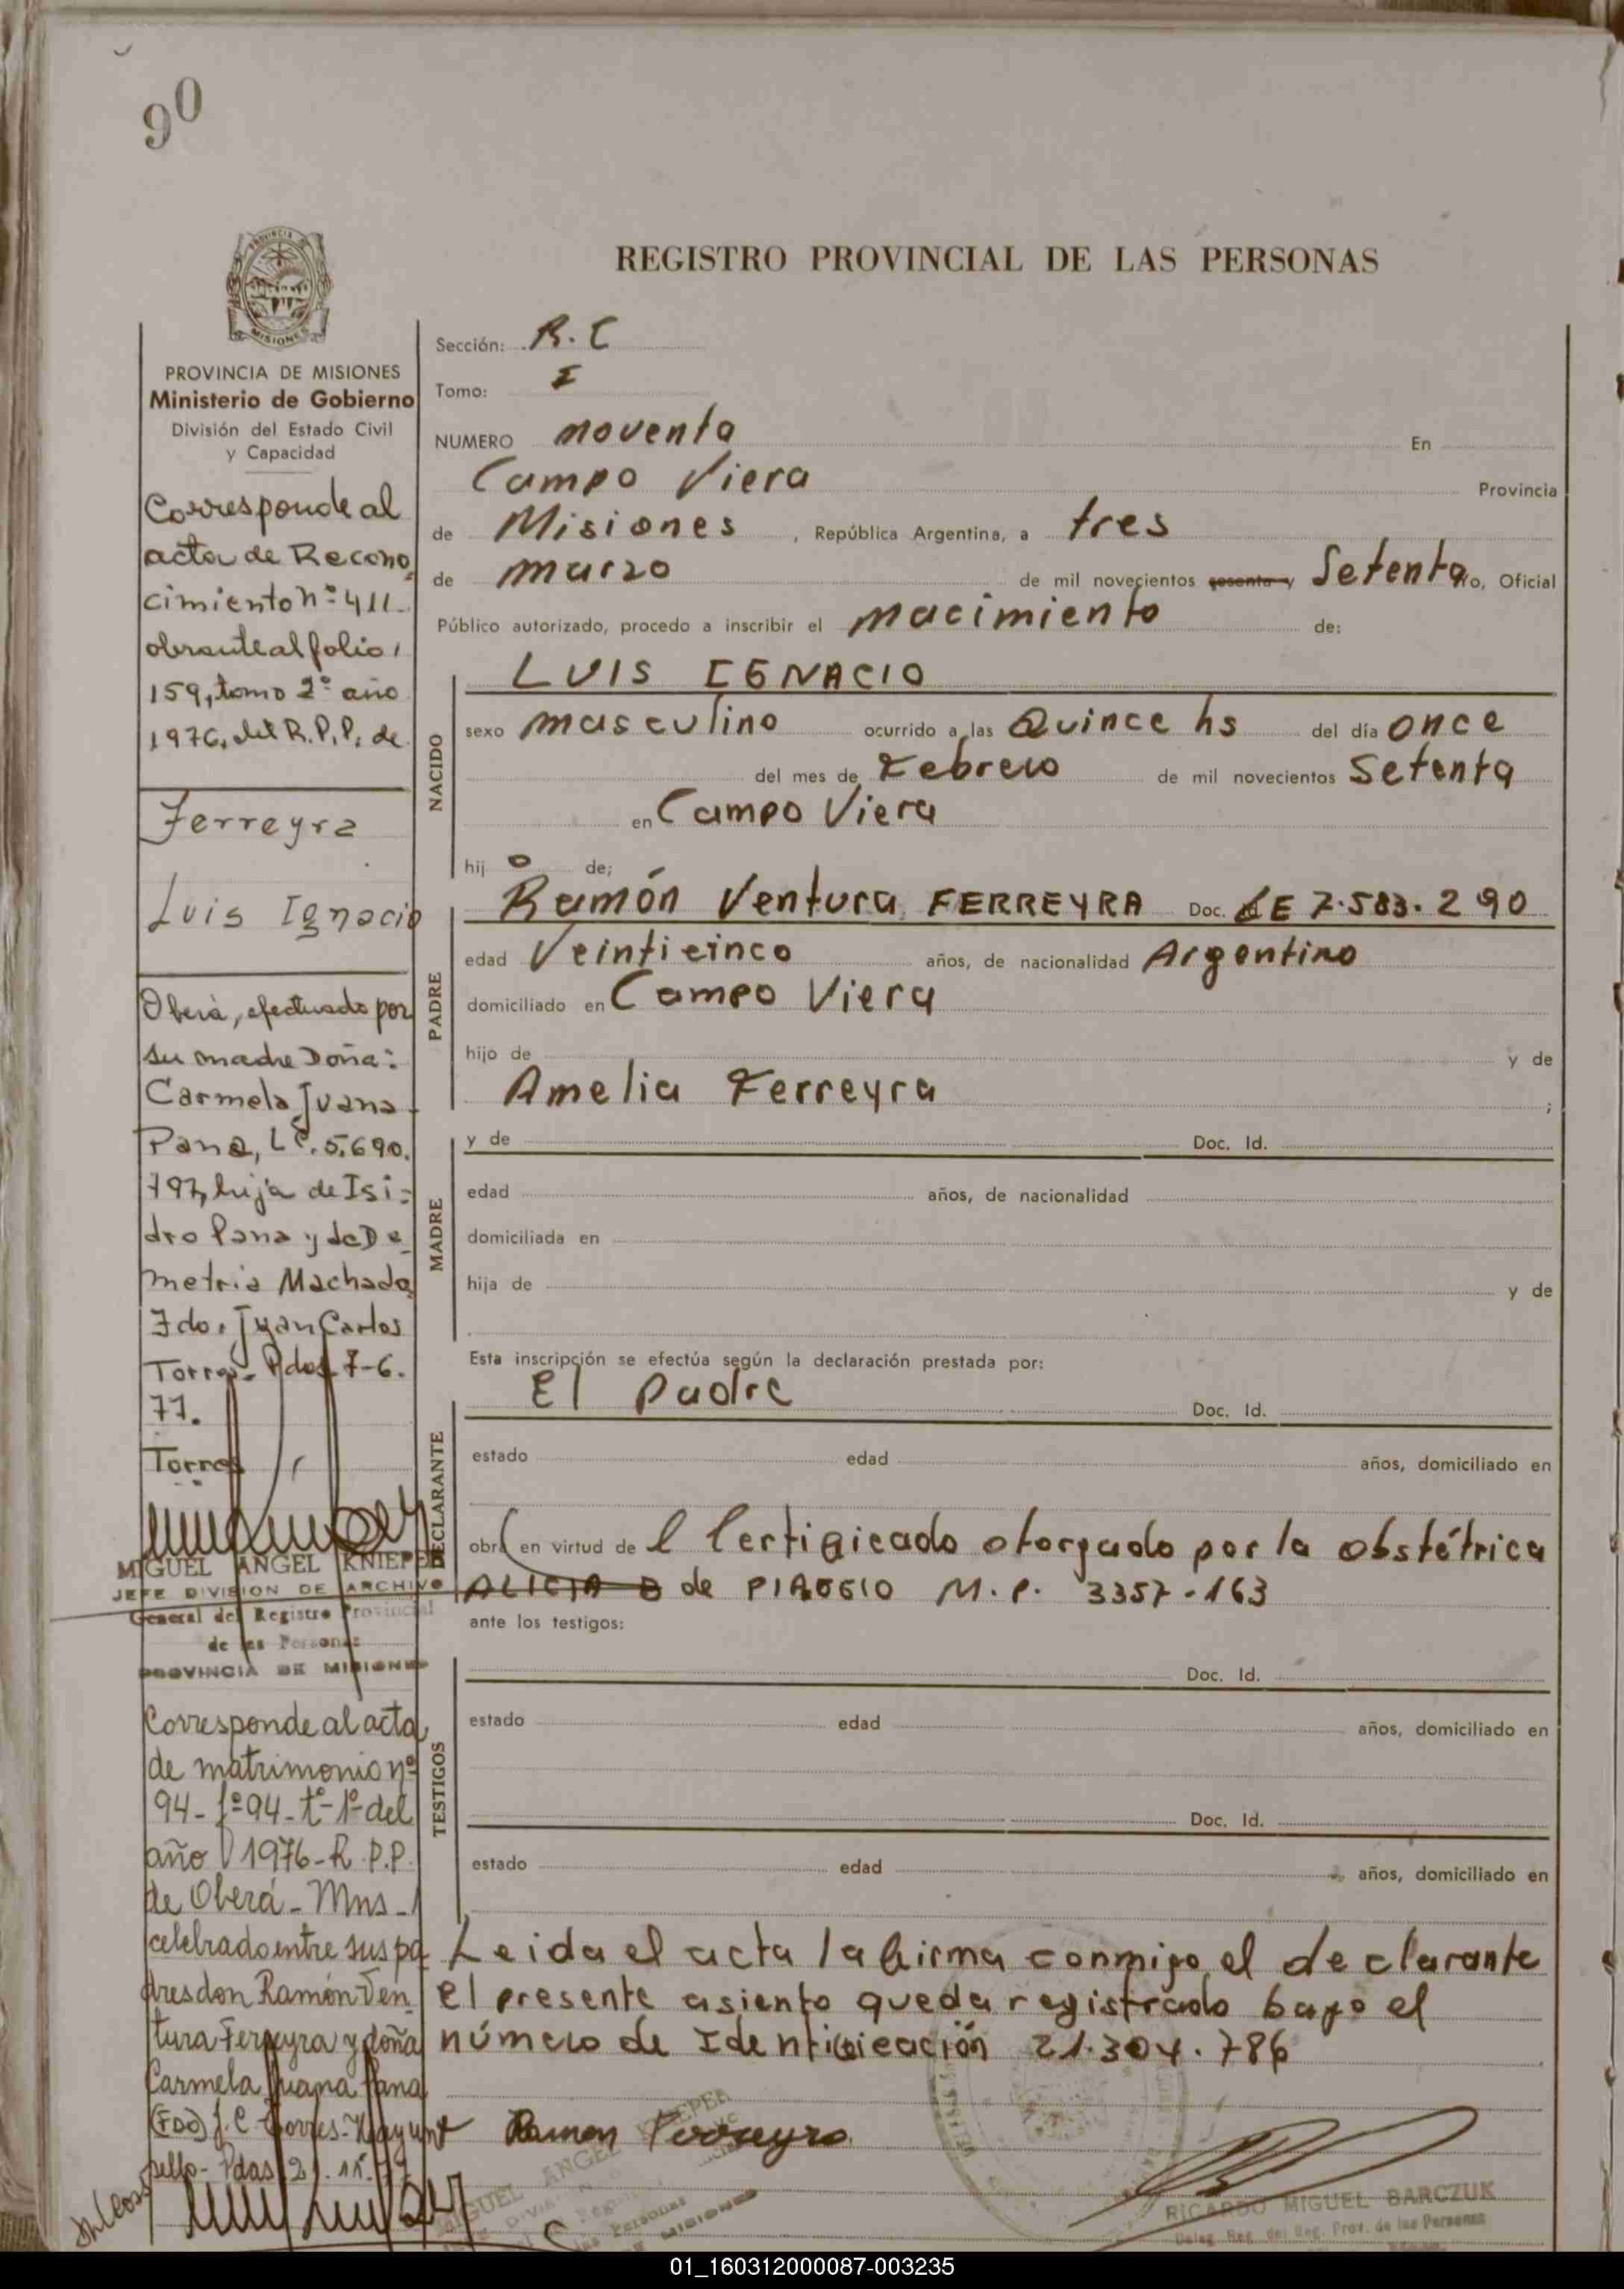 90
REGISTRO PROVINCIAL DE LAS PERSONAS
PROVINCIA DE MISIONES
Ministerio de Gobierno
División del Estado Civil
y Capacidad
Corresponde al
acta de Recono
cimiento nº 411
obrante al folio
159, tomo 2º año
1976, del R.P.P. de
Ferreyra
Luis Ignacio
Oberá, efectuado por
su madre Doña:
Carmela Juana
Pana, L.C. 5.690.
797, hija de Isi=
dro Pana y de De
metria Machado
Fdo. Juan Carlos
Torres. Pdas. 7-6.
77.
Torres
MIGUEL ANGEL KNIEPER
JEFE DIVISION DE ARCHIVO
General del Registro Provincial
de las Personas
PROVINCIA DE MISIONES
Corresponde al acta
de matrimonio nº
94- fº 94- tº- 1º del
año 1976- R.P.P.
de Oberá- Mns-
celebrado entre sus pa
dres don Ramón Ven
tura Ferreyra y doña
Carmela Juana Pana
(FDO) J. C. Torres-
sello- Pdas 2 11.
Sección: R.C
Tomo: I
NUMERO noventa En
Campo Viera Provincia
de Misiones, República Argentina, a tres
de marzo de mil novecientos sesenta y Setenta, Oficial
Público autorizado, procedo a inscribir el nacimiento de:
NACIDO
LUIS IGNACIO
sexo masculino ocurrido a las Quince hs del día once
del mes de Febrero de mil novecientos Setenta
en Campo Viera
hij o de;
PADRE
Ramón Ventura FERREYRA Doc. LE 7.583.290
edad Veinticinco años, de nacionalidad Argentino
domiciliado en Campo Viera
hijo de y de
Amelia Ferreyra ;
MADRE
y de Doc. Id.
edad años, de nacionalidad
domiciliada en
hija de y de
Esta inscripción se efectúa según la declaración prestada por:
DECLARANTE
El padre Doc. Id.
estado edad años, domiciliado en
obra en virtud de l Certificado otorgado por la obstétrica
ALICIA B de PIAGGIO M.P. 3357-163
ante los testigos:
TESTIGOS
Doc. Id.
estado edad años, domiciliado en
Doc. Id.
estado edad años, domiciliado en
Leida el acta la firma conmigo el declarante
el presente asiento queda registrado bajo el
número de Identificación 21.304.786
Ramon Ferreyra
MIGUEL ANGEL KNIEPER
RICARDO MIGUEL BARCZUK
Deleg. Reg. del Reg. Prov. de las Personas
01_160312000087-003235